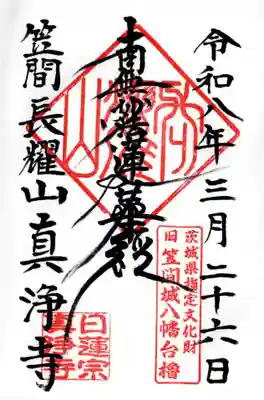 令和八年三月二十六日
南無妙法蓮華経
笠間長耀山真浄寺
茨城県指定文化財
旧笠間城八幡台櫓
日蓮宗
真浄寺